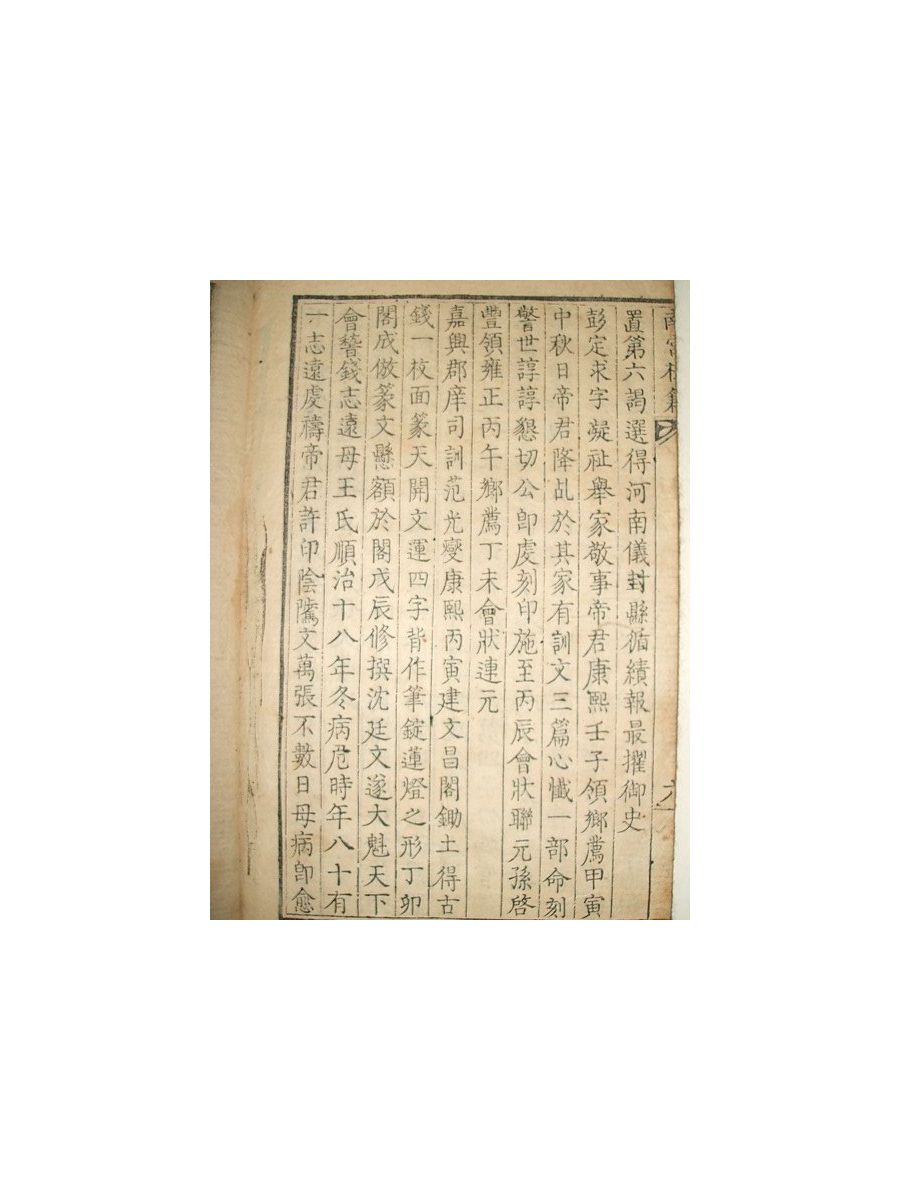 置第六謁選得河南儀封縣循績報最擢御史
彭定求字凝祉舉家敬事帝君康熙壬子領鄉薦甲寅
中秋日帝君降乩於其家有訓文三篇心懺一部命刻
警世諄諄懇切公卽虔刻印施至丙辰會狀聯元孫啓
豐領雍正丙午鄉薦丁未會狀連元
嘉興郡庠司訓范光燮康熙丙寅建文昌閣鋤土得古
錢一枚面篆天開文運四字背作筆錠蓮燈之形丁卯
閣成倣篆文懸額於閣戊辰修撰沈廷文遂大魁天下
會稽錢志遠母王氏順治十八年冬病危時年八十有
一志遠虔禱帝君許印陰騭文萬張不數日母病卽愈